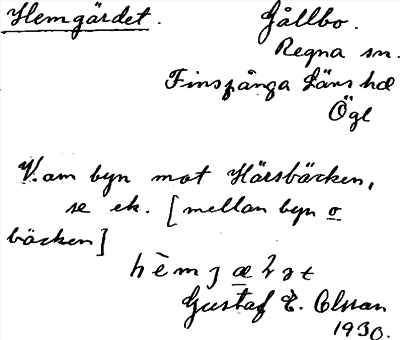 Hemgärdet.
Gållbo.
Regna sn.
Finspånga Läns hd
Ögl
V. om byn mot Härsbäcken,
se ek. [mellan byn o
bäcken]
Gustaf E. Olsson
1930.